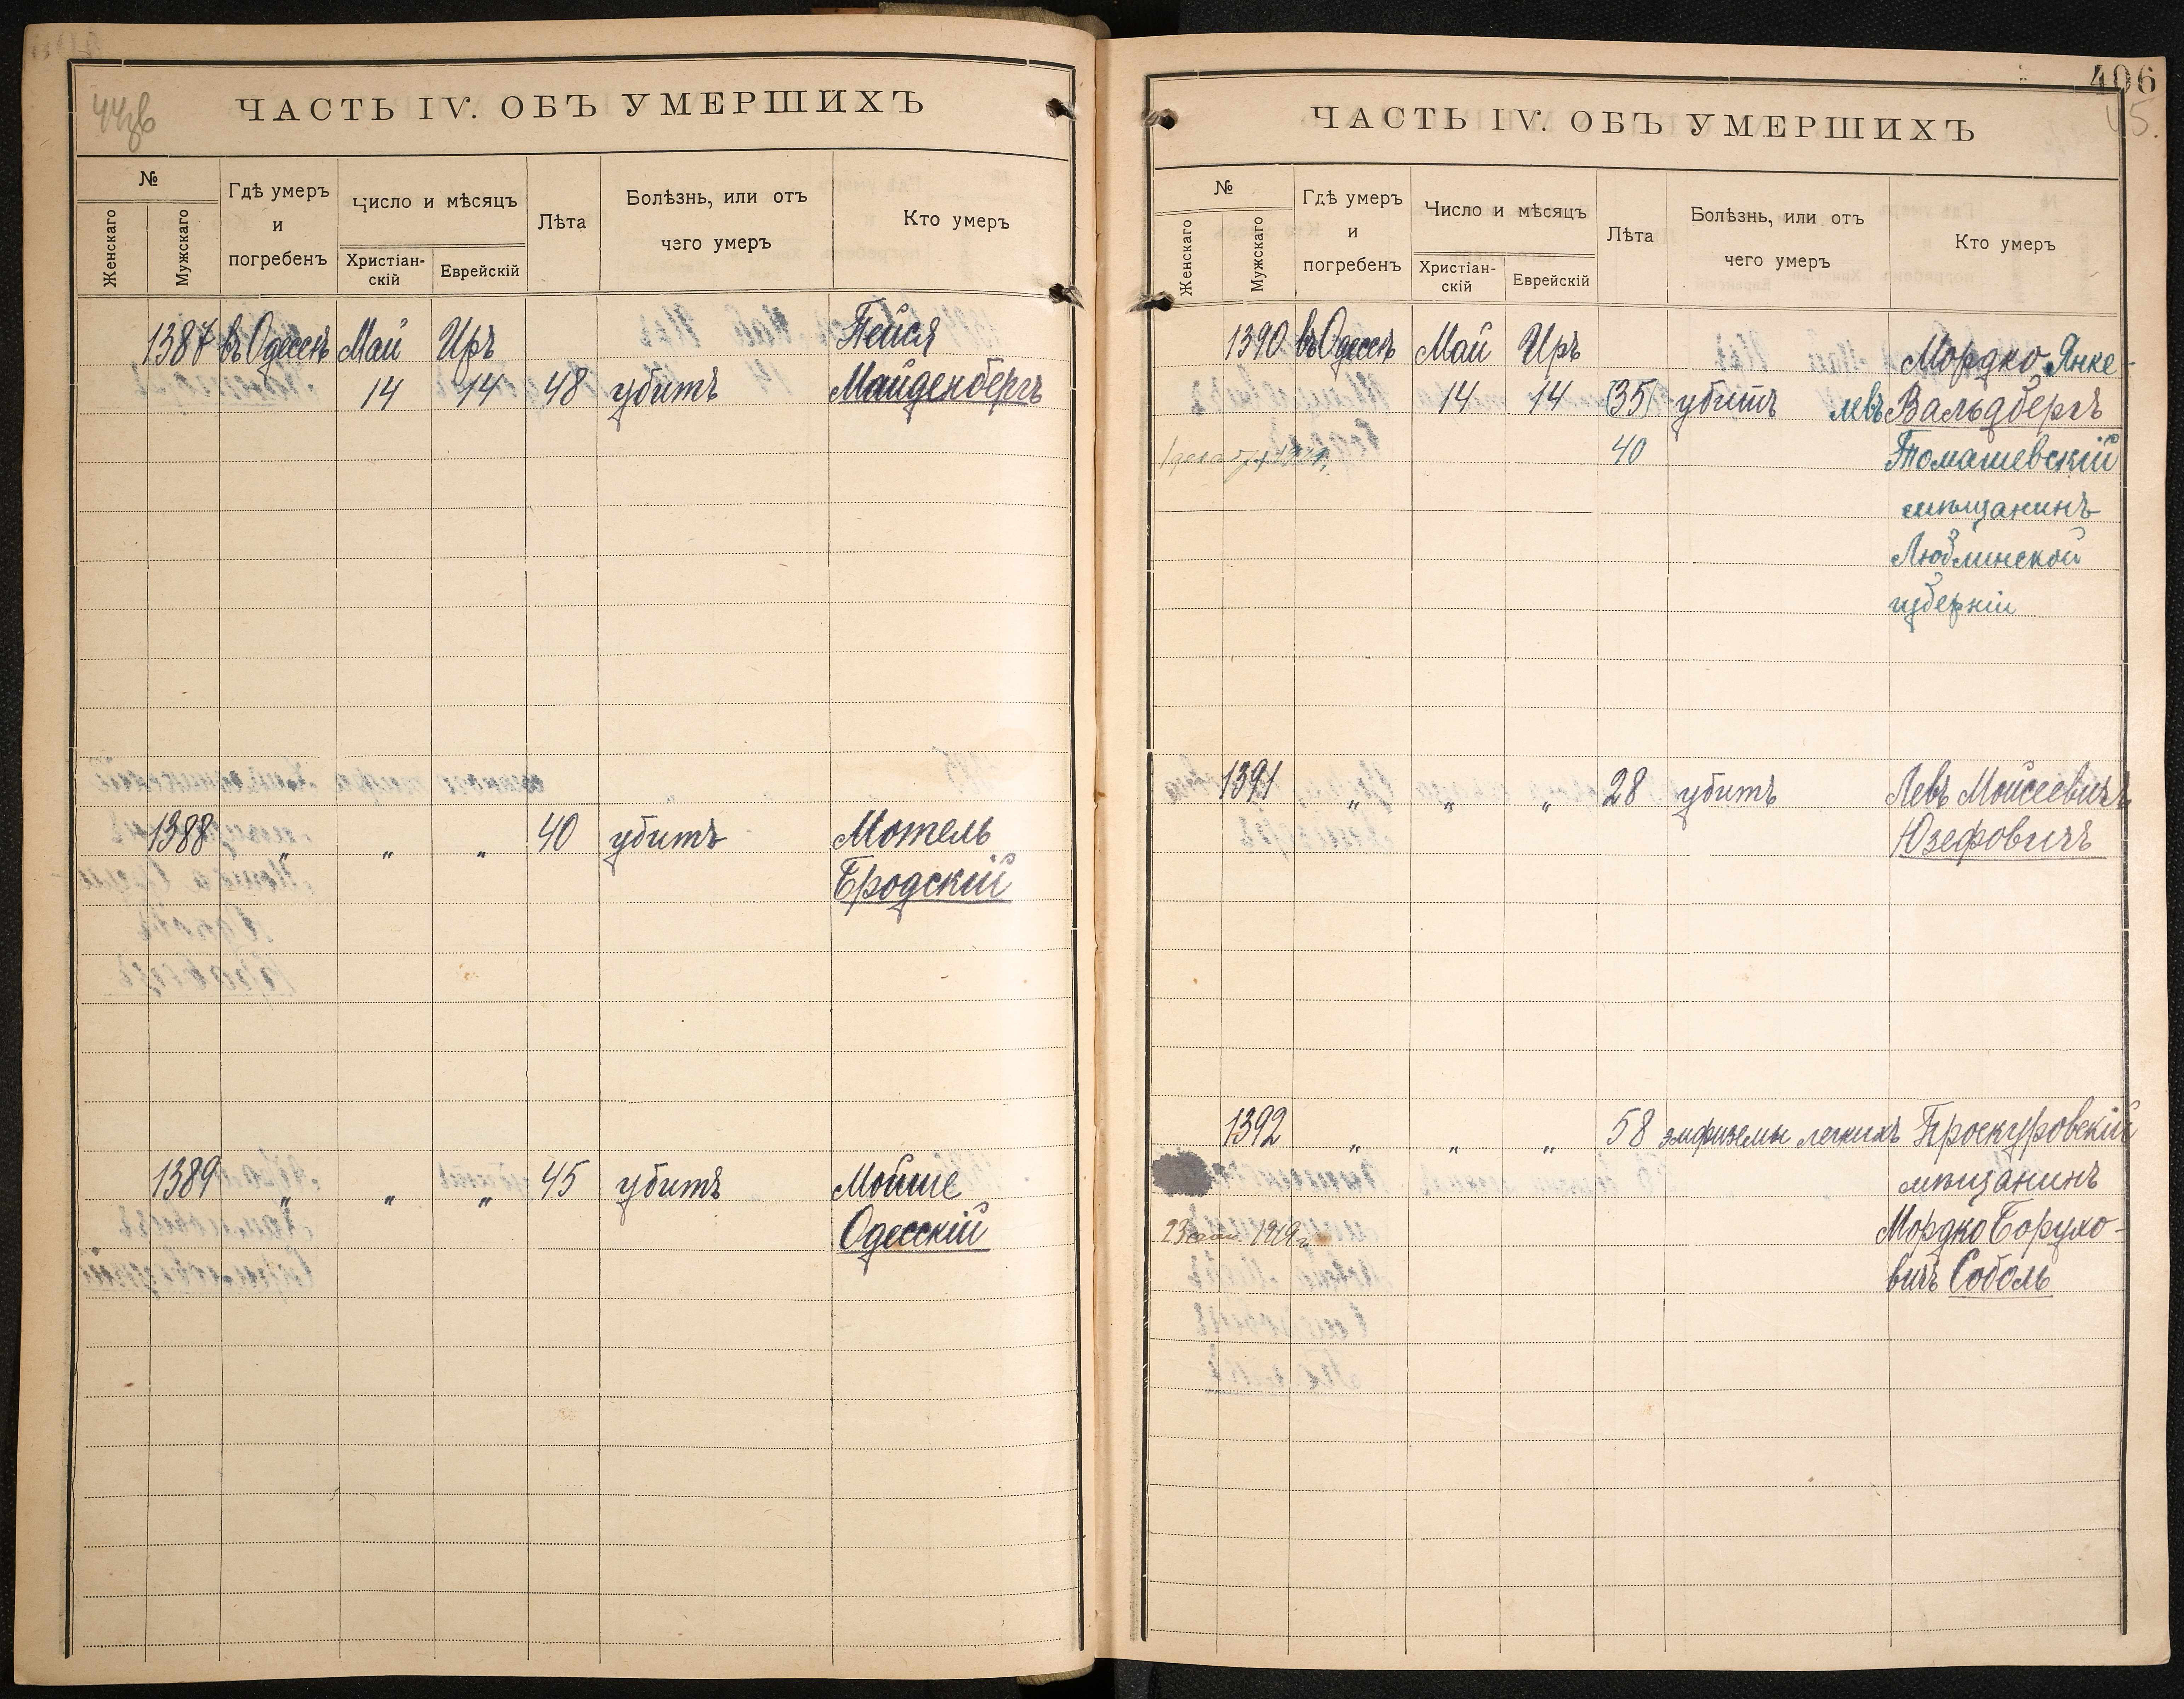 ЧАСТЬ IV. ОБЪ УМЕРШИХЪ
№
Женскаго
Мужскаго
Гдѣ умеръ
и
погребенъ
Число и мѣсяцъ
Христіан-
скій
Еврейскій
Лѣта
Болѣзнь, или отъ
чего умеръ
Кто умеръ
1387 въ Одессѣ Май Иръ Пейся
14 14 48 убитъ Майденбергъ
1388 „ „ „ 40 убитъ Мотель
Бродскій
1389 „ „ „ 45 убитъ Мойше
Одесскій
406
45.
ЧАСТЬ IV. ОБЪ УМЕРШИХЪ
№
Женскаго
Мужскаго
Гдѣ умеръ
и
погребенъ
Число и мѣсяцъ
Христіан-
скій
Еврейскій
Лѣта
Болѣзнь, или отъ
чего умеръ
Кто умеръ
1390 въ Одессѣ Май Иръ Мордко Янке-
14 14 (35) убитъ левъ Вальдбергъ
40 Томашевскій
мѣщанинъ
Люблинской
губерніи
1391 „ „ „ 28 убитъ Левъ Моисеевичъ
Юзефовичъ
1392 „ „ „ 58 эмфиземы легкихъ Проскуровскій
мѣщанинъ
23 мая 1919 г. Мордко Борухо-
вичъ Соболь